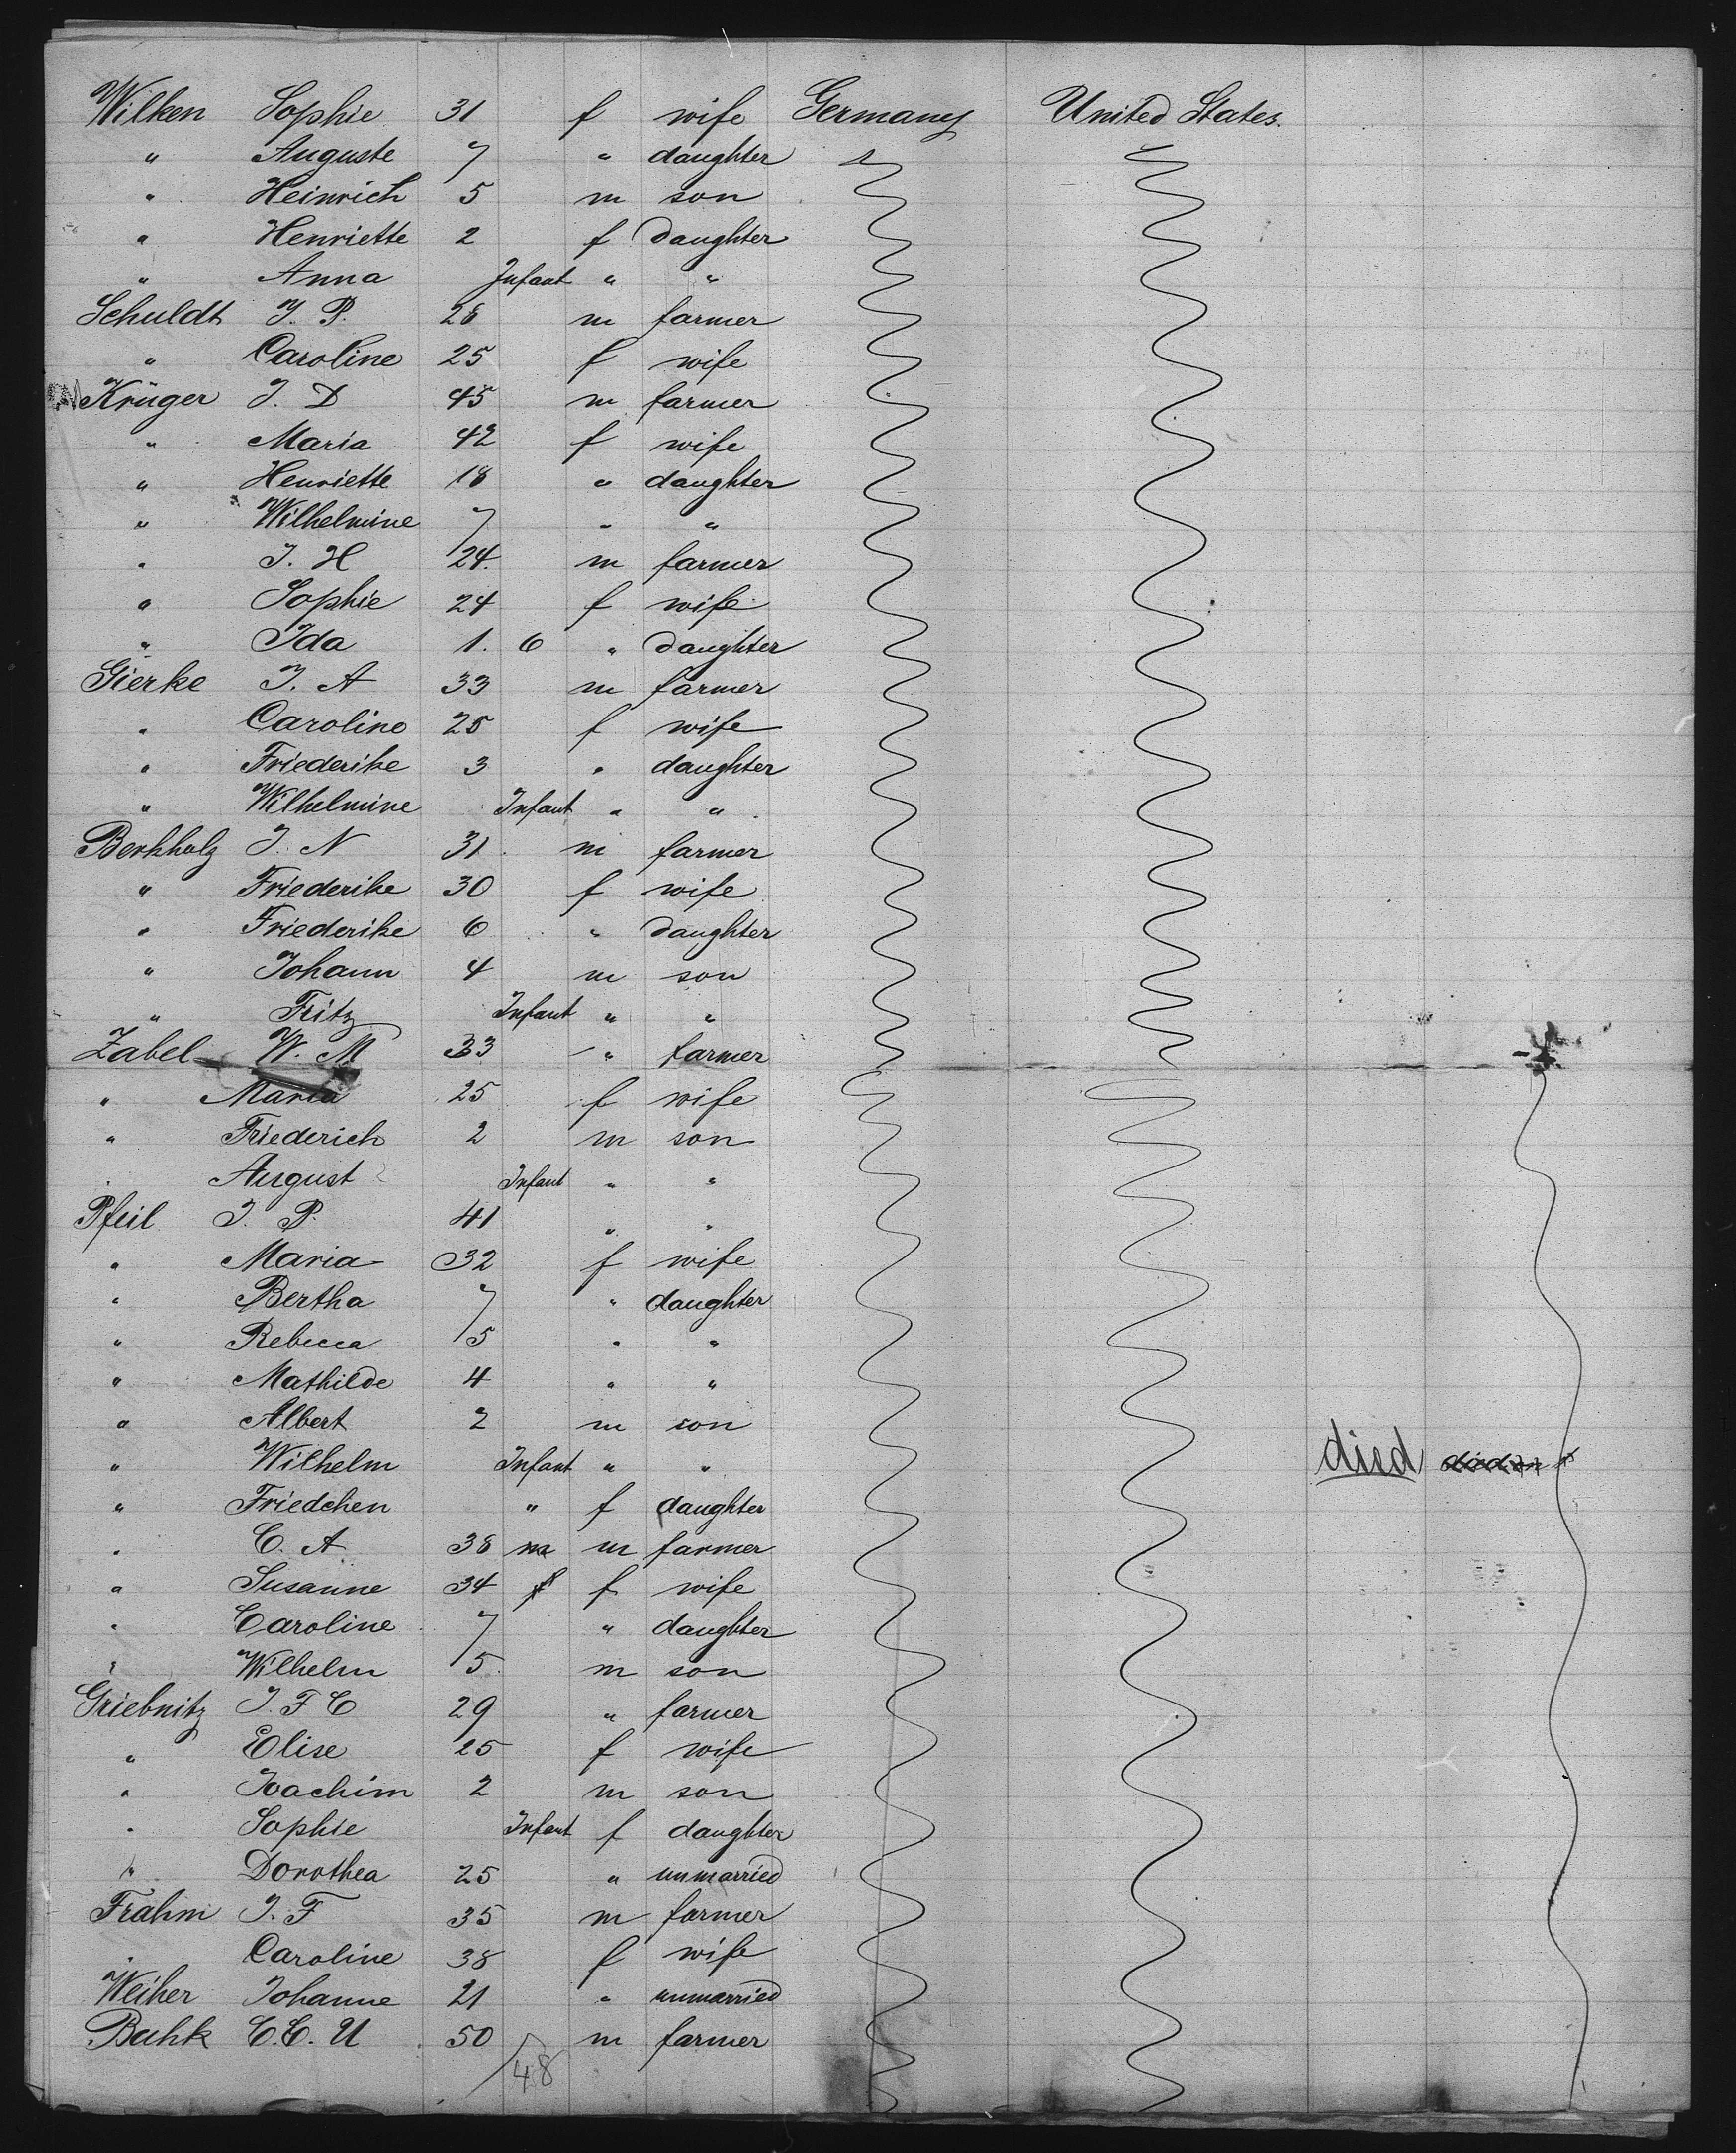 Wilken Sophie 31 f wife Germany United States.
" Auguste 7 " daughter
" Heinrich 5 m son
" Henriette 2 f daughter
" Anna Infant " "
Schuldt J. P. 28 m farmer
" Caroline 25 f wife
Krüger J. D 45 m farmer
" Maria 42 f wife
" Henriette 18 " daughter
" Wilhelmine 7 " "
" J. H 24. m farmer
" Sophie 24 f wife
" Ida 1. 6 " daughter
Gierke J. A 33 m farmer
" Caroline 25 f wife
" Friederike 3 " daughter
" Wilhelmine Infant " "
Berkholz J. N 31 m farmer
" Friederike 30 f wife
" Friederike 6 " daughter
" Johann 4 m son
" Fritz Infant " "
Zabel W. M 33 " farmer
" Maria 25 f wife
" Friederich 2 m son
" August Infant " "
Pfeil J. P. 41 " "
" Maria 32 f wife
" Bertha 7 " daughter
" Rebecca 5 " "
" Mathilde 4 " "
" Albert 2 m son
" Wilhelm Infant " " died
" Friedchen " f daughter
" C. A 38 m m farmer
" Susanne 34 f f wife
" Caroline 7 " daughter
" Wilhelm 5. m son
Griebnitz J. F C 29 " farmer
" Elise 25 f wife
" Joachim 2 m son
" Sophie Infant f daughter
" Dorothea 25 " unmarried
Frahm J. F 35 m farmer
" Caroline 38 f wife
Weiher Johanne 21 " unmarried
Buhk C. C. U 50 m farmer
48